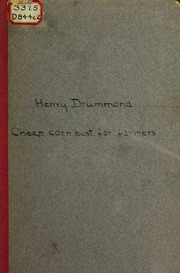 3375
D844cc
Henry Drummond
Cheap corn best for farmers